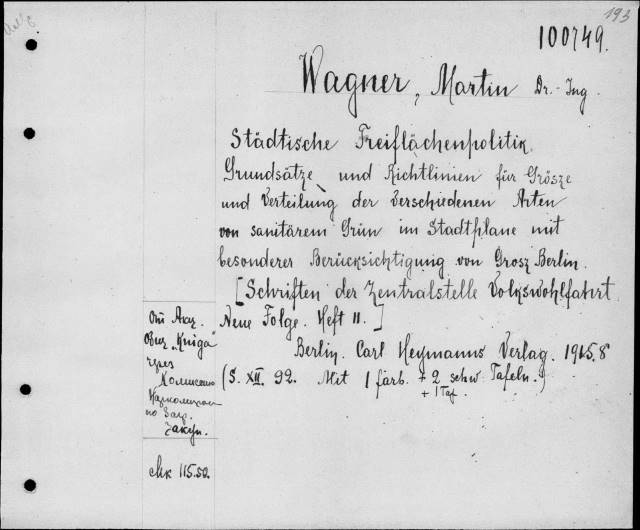 193
100749.
Wagner, Martin Dr.-Ing.
Städtische Freiflächenpolitik.
Grundsätze und Richtlinien für Grösze
und Verteilung der verschiedenen Arten
von sanitärem Grün im Stadtplane mit
besonderer Berücksichtigung von Grosz Berlin.
[Schriften der Zentralstelle Volkswohlfahrt.
Neue Folge. Heft 11.]
Berlin. Carl Heymanns Verlag. 1915.8
(S. XII. 92. Mit 1 färb. + 2 schw. Tafeln.)
+ 1 Taf.
От Акц.
Общ. „Книга"
через
Комиссию
по Загр.
Закуп.
115.50.